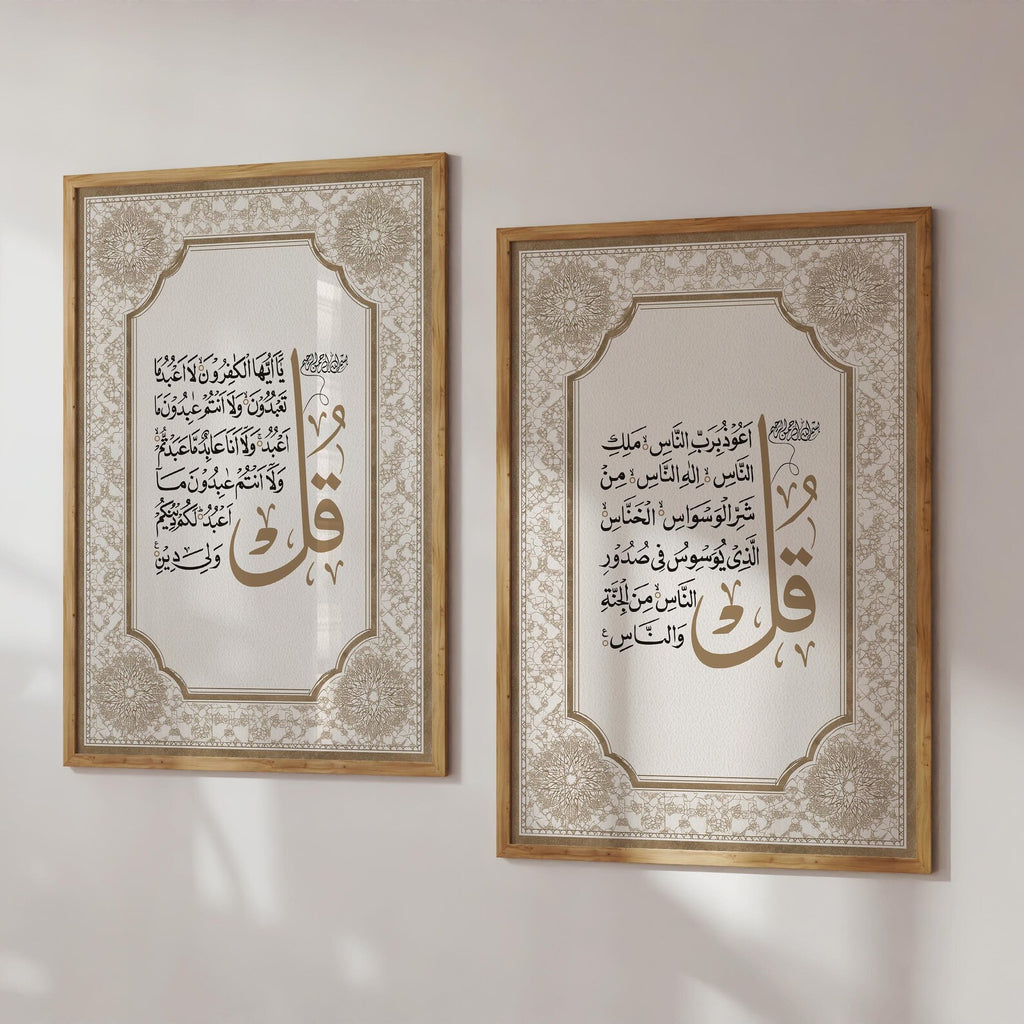 بسم الله الرحمن الرحيم
قُلْ
يَٓا اَيُّهَا الْكَٰفِرُونَ لَٓا اَعْبُدُ مَا
تَعْبُدُونَ وَلَٓا اَنْتُمْ عَٰبِدُونَ مَٓا
اَعْبُدُ وَلَٓا اَنَا عَابِدٌ مَّا عَبَدْتُّمْ
وَلَٓا اَنْتُمْ عَٰبِدُونَ مَٓا
اَعْبُدُ لَكُمْ دِينُكُمْ
وَلِيَ دِينِ
بسم الله الرحمن الرحيم
قُلْ
اَعُوذُ بِرَبِّ النَّاسِ مَلِكِ
النَّاسِ اِلَٰهِ النَّاسِ مِنْ
شَرِّ الْوَسْوَاسِ الْخَنَّاسِ
الَّذِي يُوَسْوِسُ فِي صُدُورِ
النَّاسِ مِنَ الْجِنَّةِ
وَالنَّاسِ